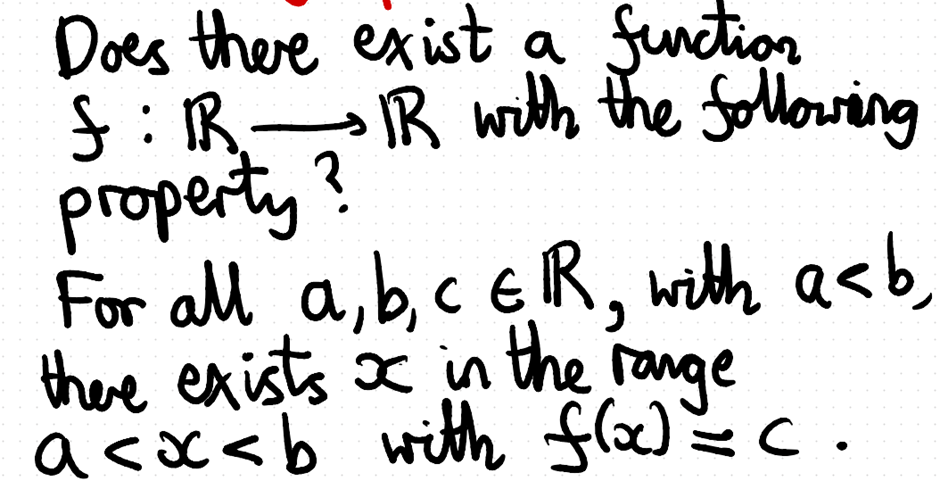 Does there exist a function
f : ℝ ⟶ ℝ with the following
property?
For all a, b, c ∈ ℝ, with a < b,
there exists x in the range
a < x < b with f(x) = c .